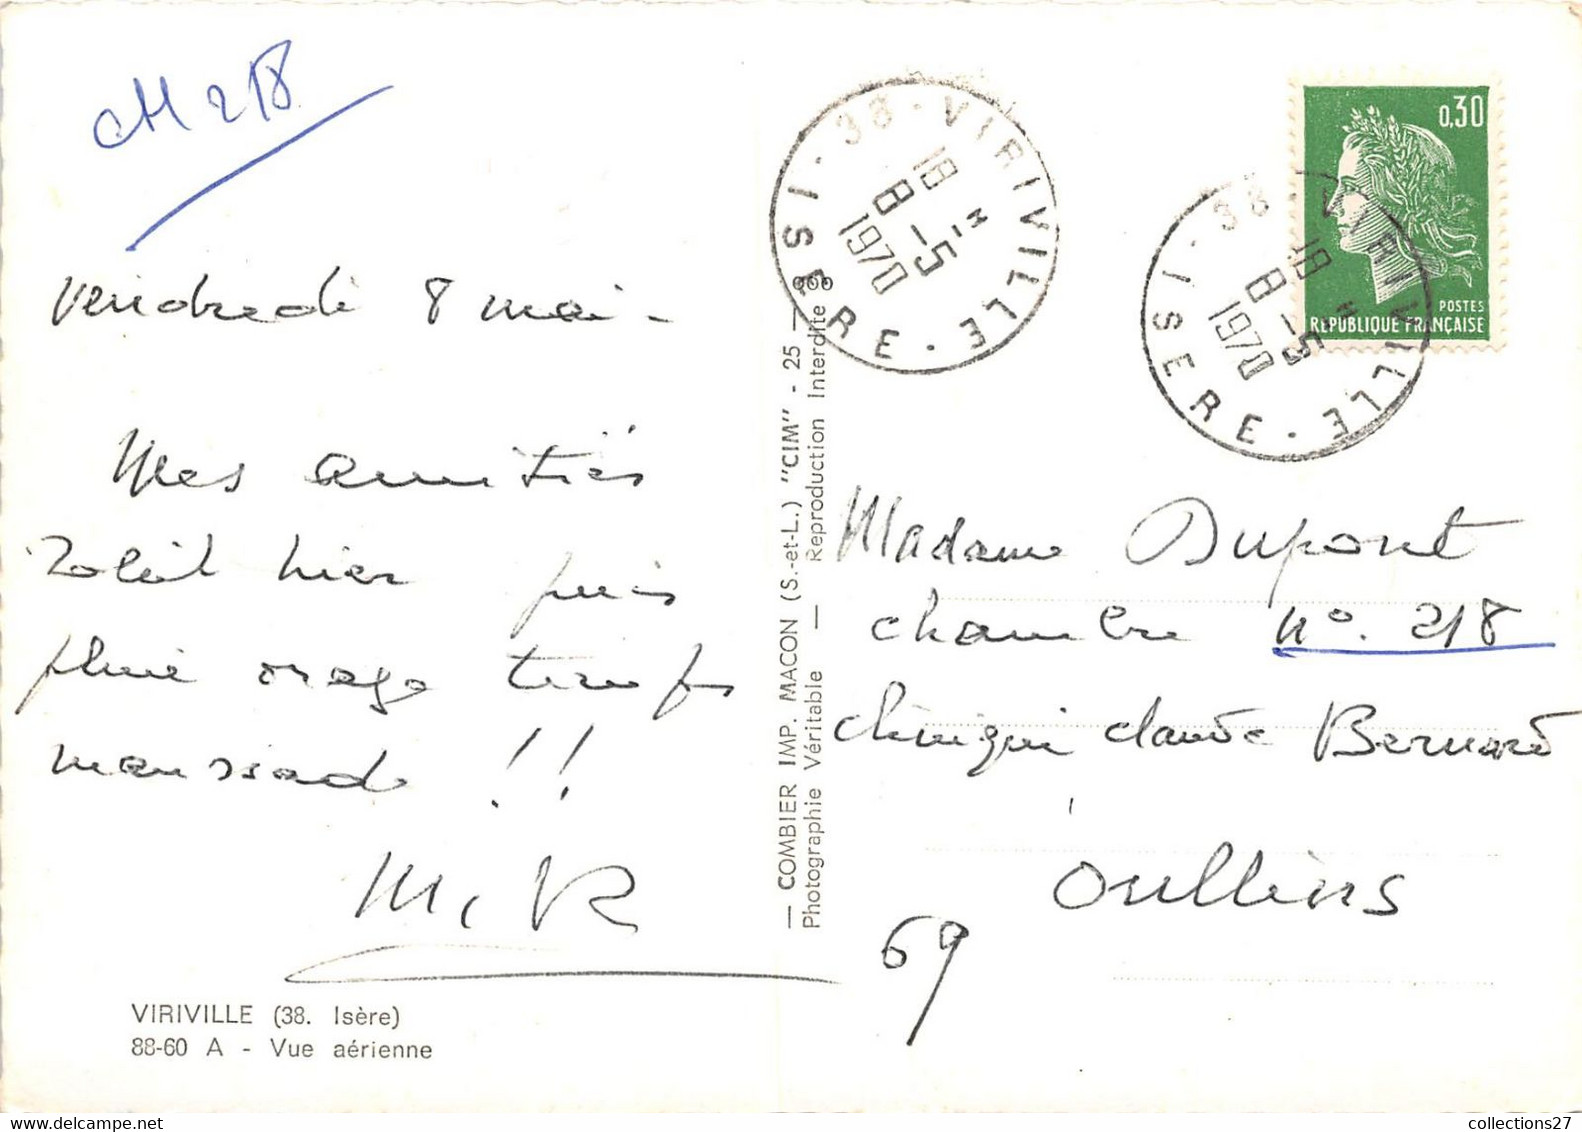 CH 218
Vendredi 8 mai -
Mes amitiés
Soleil hier puis
pluie orage temps
maussade !!
M. R
VIRIVILLE (38. Isère)
88-60 A - Vue aérienne
— COMBIER IMP. MACON (S.-et-L.) "CIM" - 25 —
Photographie Véritable — Reproduction Interdite
38 - VIRIVILLE - ISERE
18 H
8 -5
1970
38 - VIRIVILLE - ISERE
18 H
8 -5
1970
0,30
POSTES
REPUBLIQUE FRANÇAISE
Madame Dupont
chambre n°. 218
clinique Claude Bernard
Oullins
69
collections27